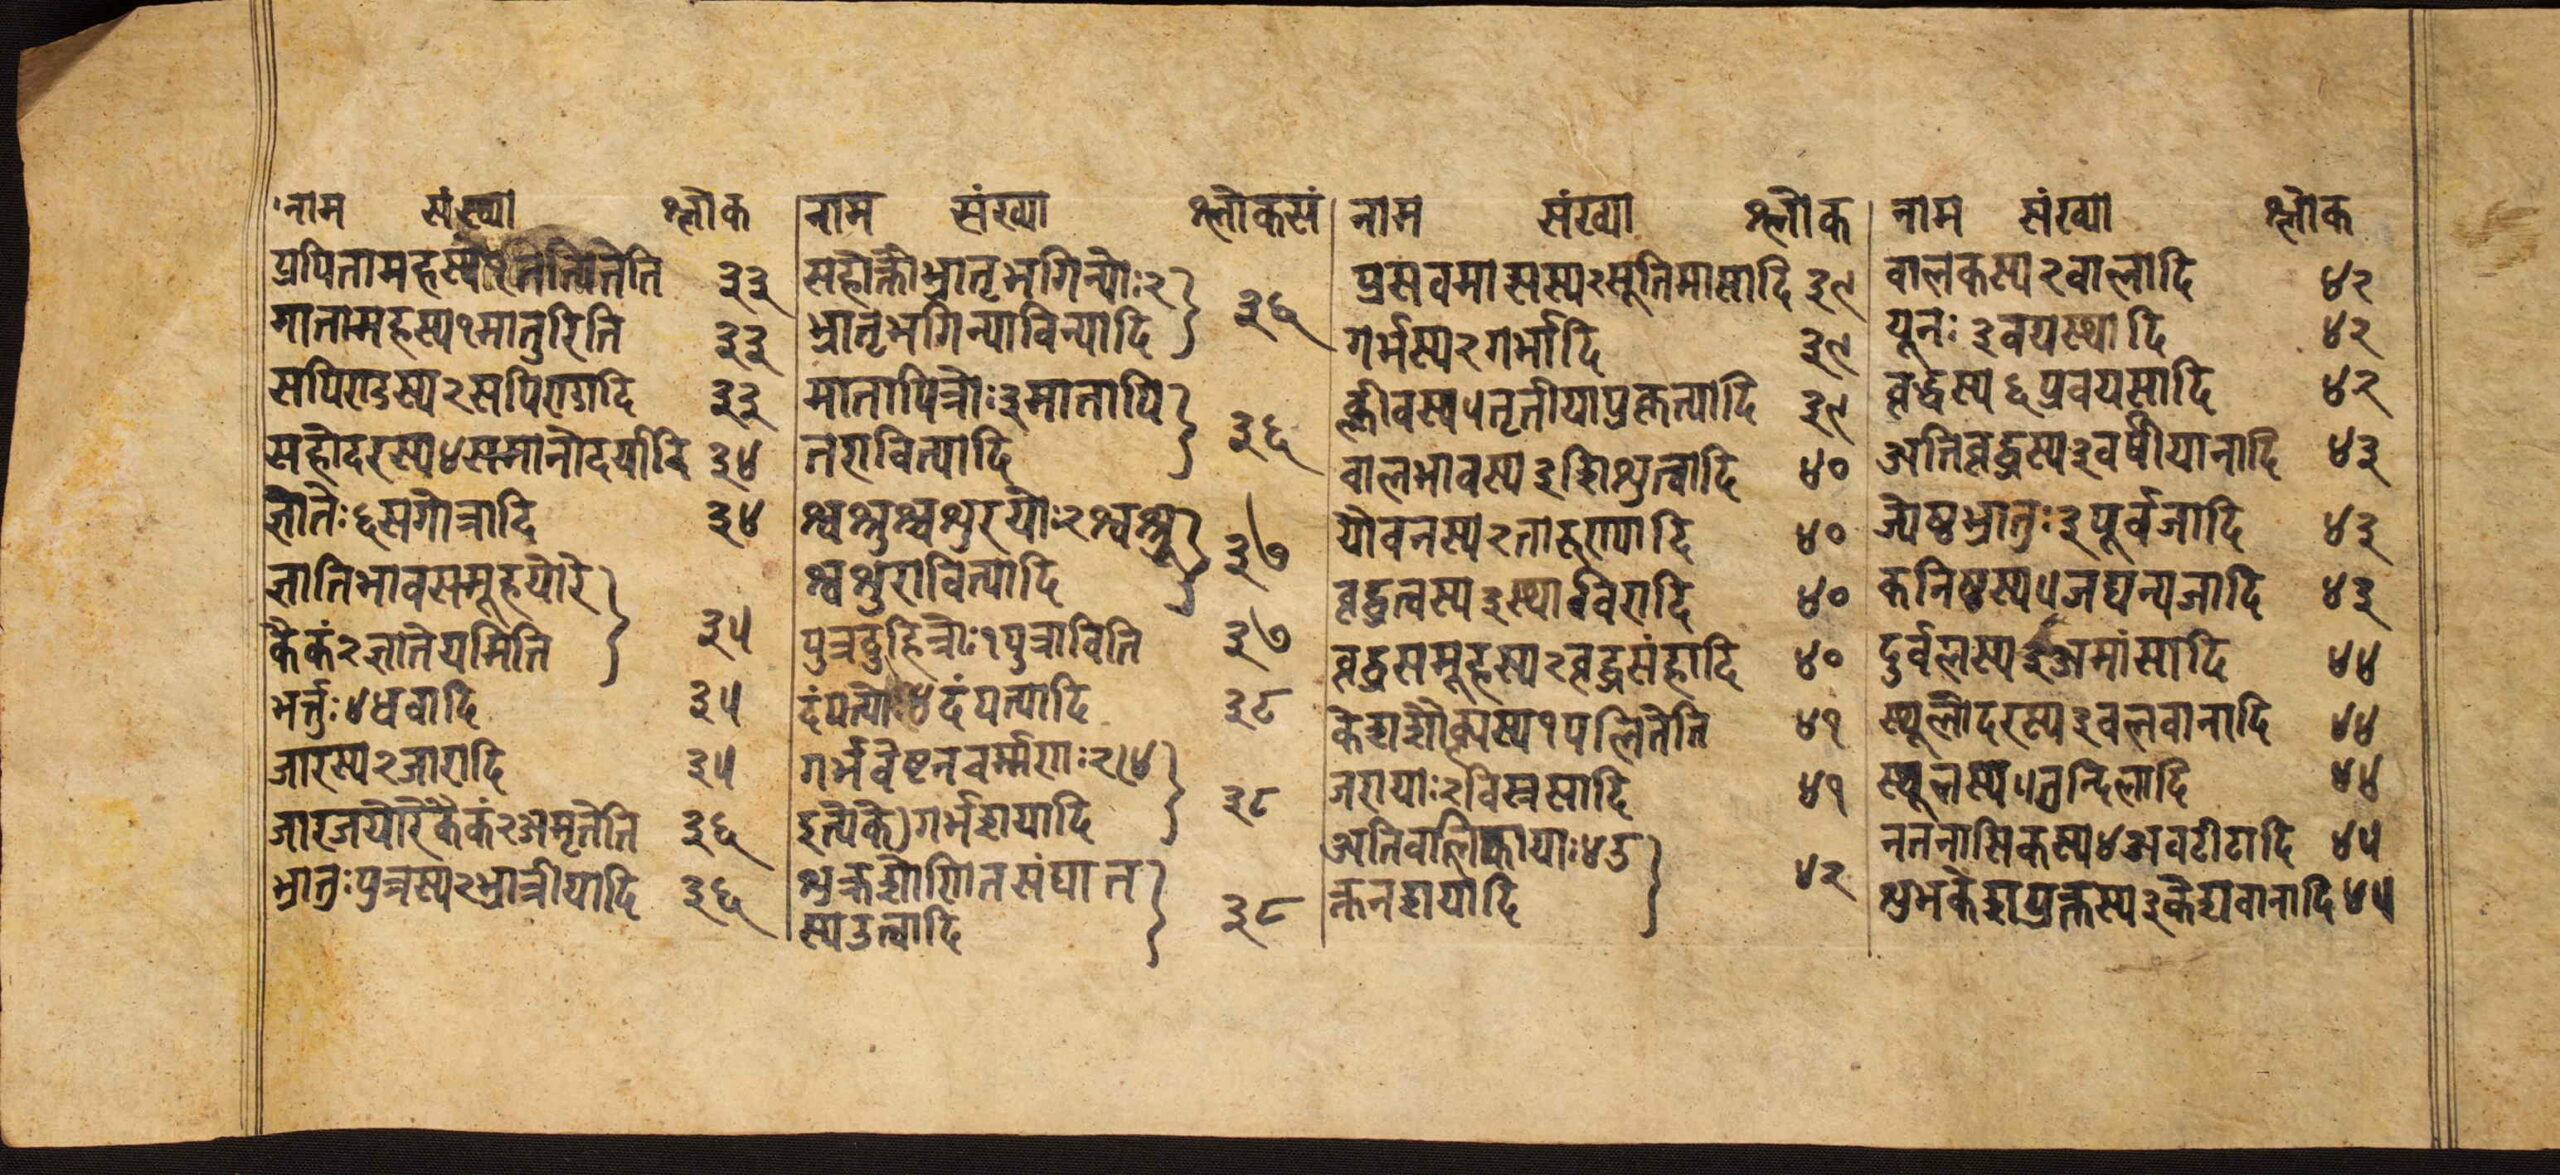 नाम संख्या श्लोक
प्रपितामहस्य १ तत्पितेति ३३
मातामहस्य १ मातुरिति ३३
सपिण्डस्य २ सपिण्डादि ३३
सहोदरस्य ४ समानोदर्यादि ३४
ज्ञातेः ६ सगोत्रादि ३४
ज्ञातिभावसमूहयोरे
कैकं २ ज्ञातेयमिति ३५
भर्त्तुः ४ धवादि ३५
जारस्य २ जारादि ३५
जारजयोरेकैकं २ अमृतेति ३६
भ्रातुःपुत्रस्य २ भ्रात्रीयादि ३६
नाम संख्या श्लोकसं
सहोक्तौ भ्रातृभगिन्योः २
भ्रातृभगिन्याविन्यादि ३६
मातापित्रोः ३ मातापि
तरावित्यादि ३६
श्वश्रुश्वशुरयोः २ श्वश्रू
श्वशुरावित्यादि ३७
पुत्रदुहित्रोः १ पुत्राविति ३७
दंपत्योः ४ दंपत्यादि ३८
गर्भवेष्टनचर्म्मणः २ (४
इत्येके) गर्भाशयादि ३८
शुक्रशोणितसंघात
स्य उल्वादि ३८
नाम संख्या श्लोक
प्रसवमासस्य २ सूतिमासादि ३९
गर्भस्य २ गर्भादि ३९
क्लीवस्य ५ तृतीयाप्रकृत्यादि ३९
वालभावस्य ३ शिशुत्वादि ४०
यौवनस्य २ तारुण्यादि ४०
वृद्धत्वस्य ३ स्थाविरादि ४०
वृद्धसमूहस्य २ वृद्धसंहादि ४०
केशशौक्ल्यस्य १ पलितेति ४१
जरायाः २ विस्रसादि ४१
अतिवालिकायाः ४ उ
त्तानशयादि ४२
नाम संख्या श्लोक
वालकस्य २ वालादि ४२
यूनः ३ वयस्थादि ४२
वृद्धस्य ६ प्रवयसादि ४२
अतिवृद्धस्य ३ वर्षीयानादि ४३
ज्येष्ठभ्रातुः ३ पूर्वजादि ४३
कनिष्ठस्य ५ जघन्यजादि ४३
दुर्वलस्य ३ अमांसादि ४४
स्थूलोदरस्य ३ वलवानादि ४४
स्थूलस्य ५ तुन्दिलादि ४४
नतनासिकस्य ४ अवटीटादि ४५
शुभकेशप्रक्तस्य ३ केशवानादि ४५